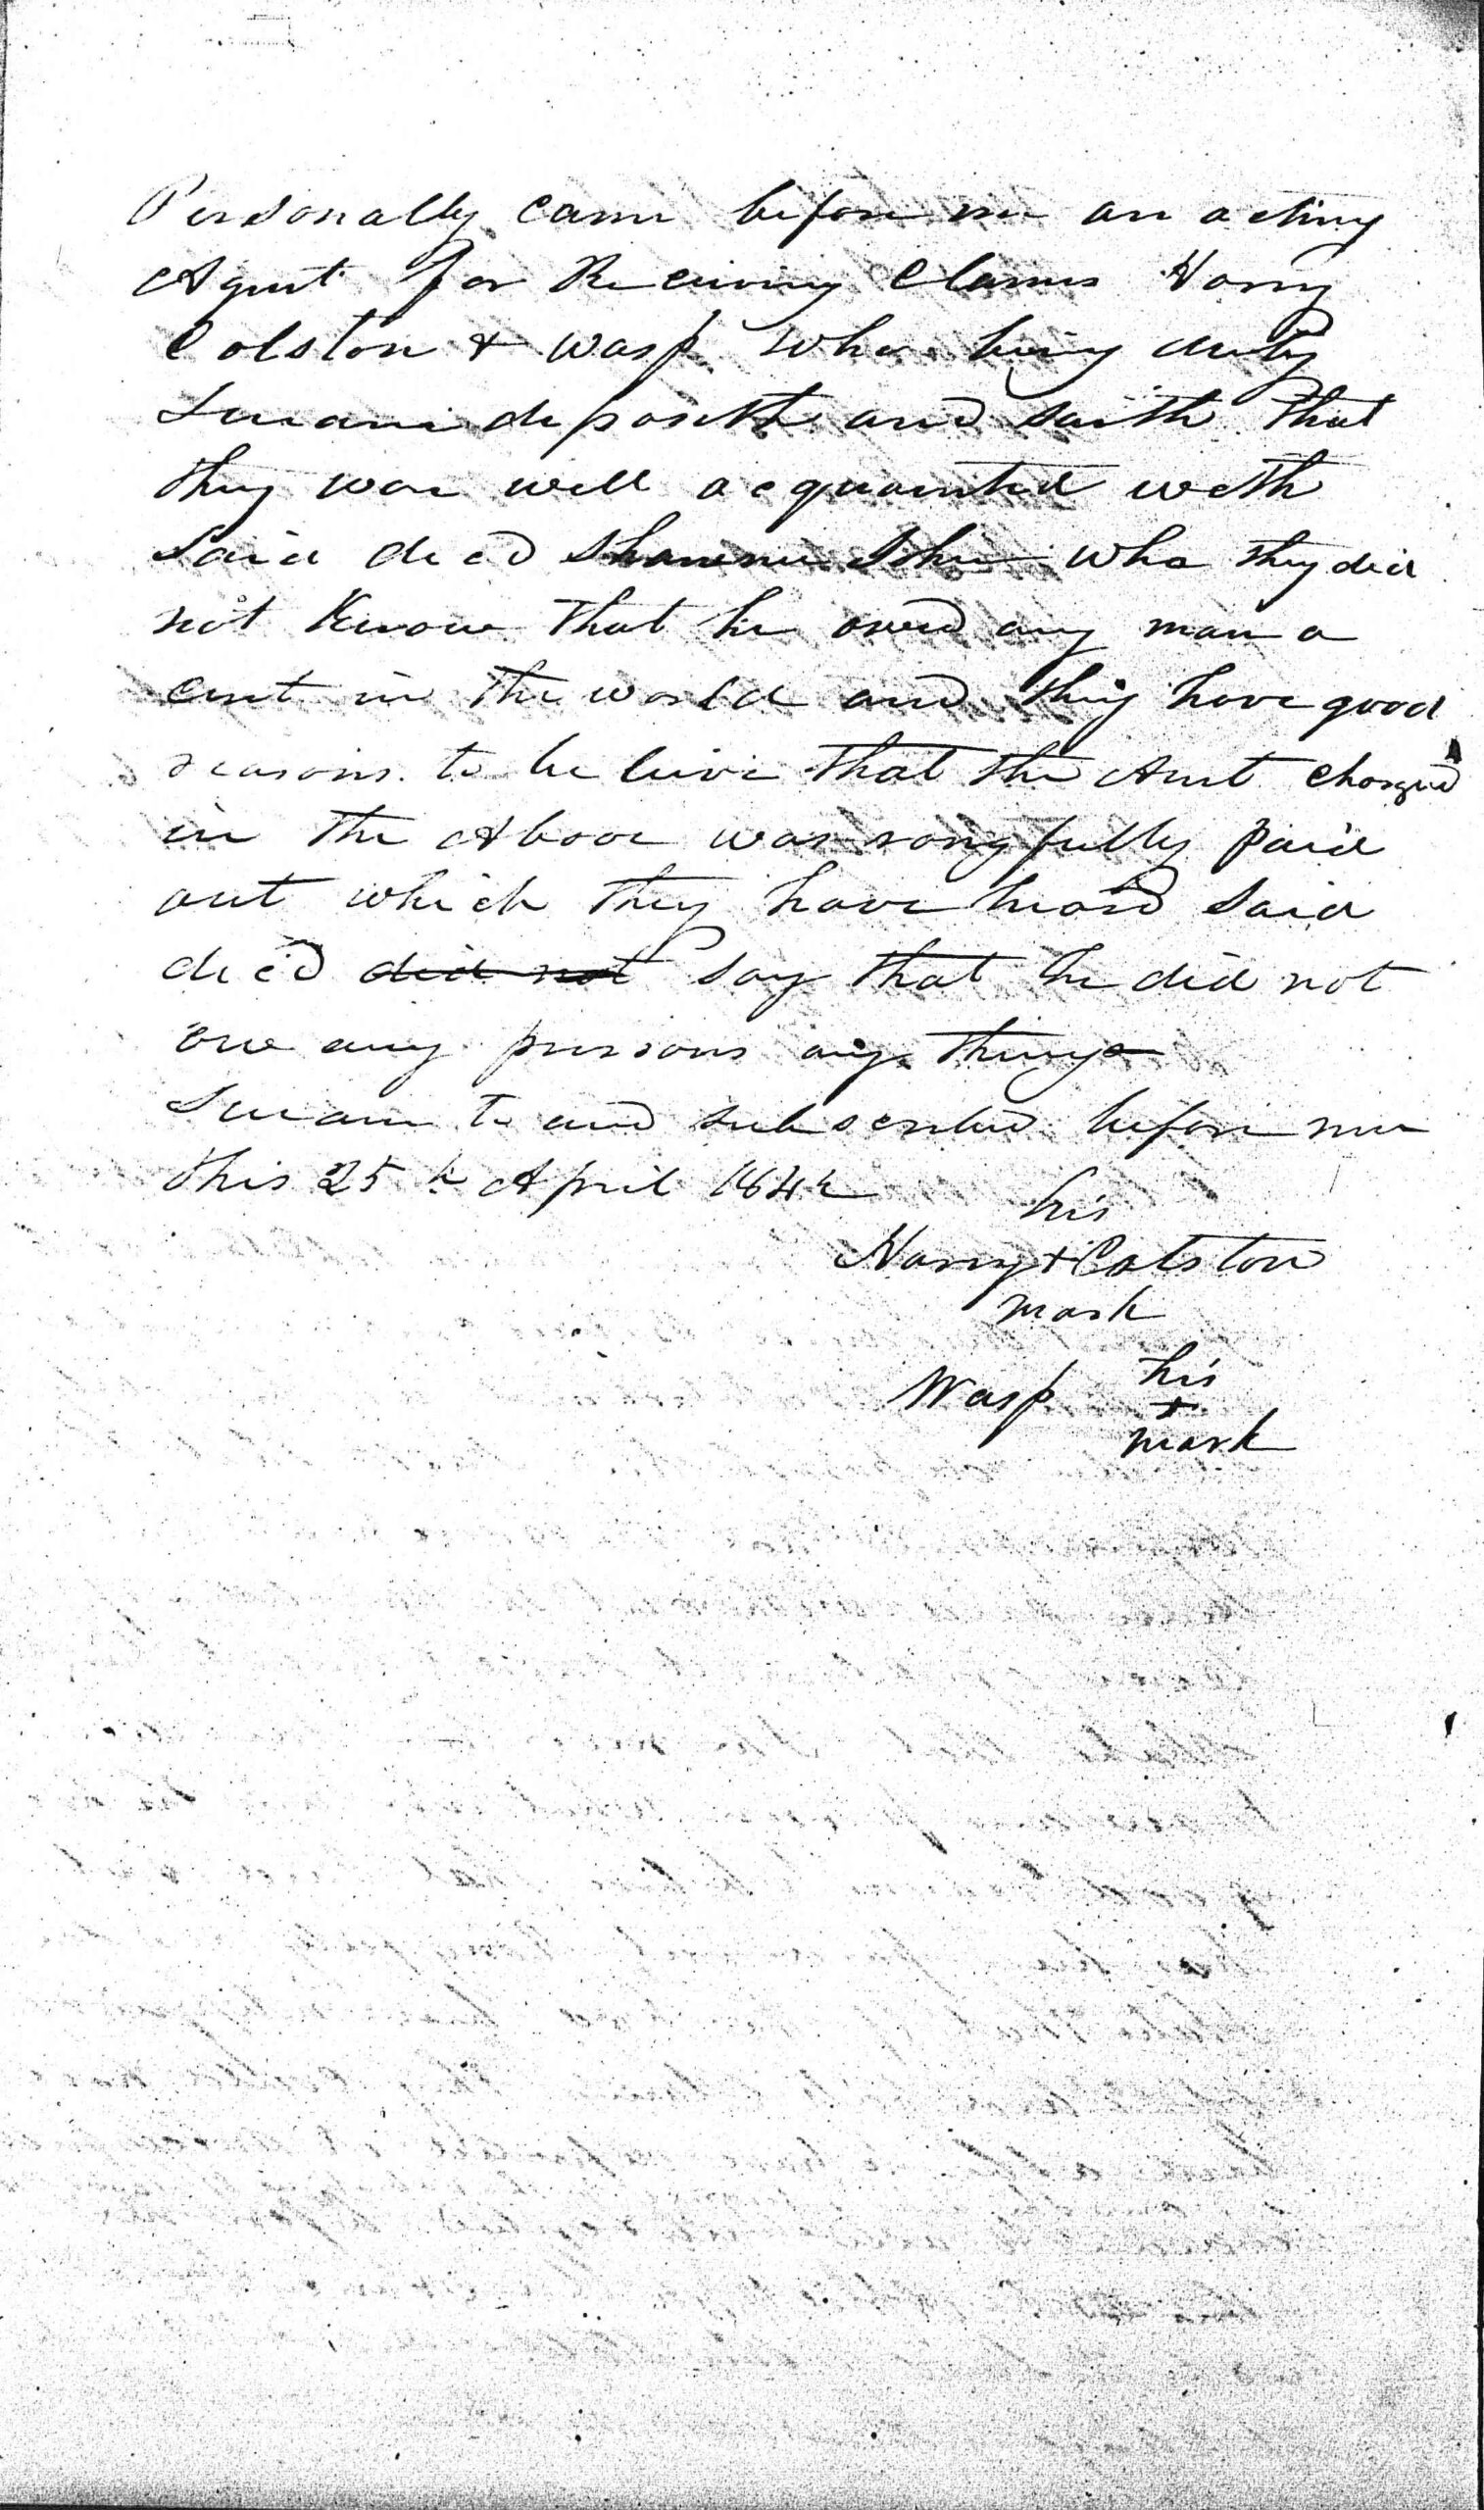 Personally came before me an acting
Agent for Receiving Claims Harry
Colston & Wasp who being duly
Swarn deposeth and saith that
they war well acquainted with
Said decd John who they did
not Know that he owed any man a
cent in the world and they have good
reasons to believe that the Amt charged
in the Above was rongfully paid
out which they have heard Said
decd did not say that he did not
owe any persons any thing
Swarn to and subscribed before me
this 25th April 1842
his
Harry + Colston
mark
his
Wasp +
mark